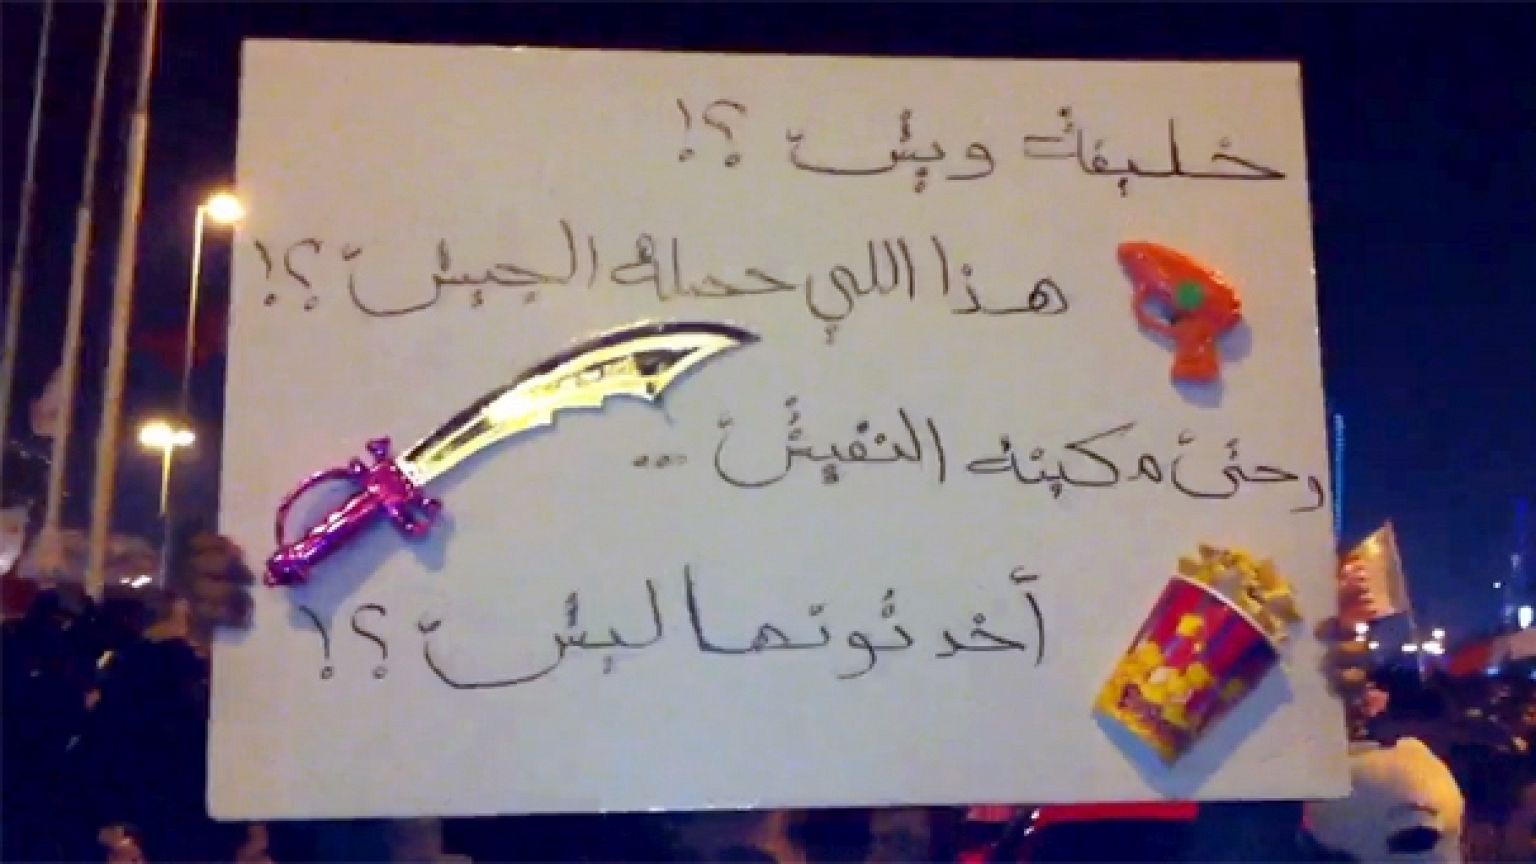 خليفة ويش ؟!
هذا اللي حصله الجيش ؟!
وحتى مكينة النفيش ..
أخدتوتها ليش ؟!